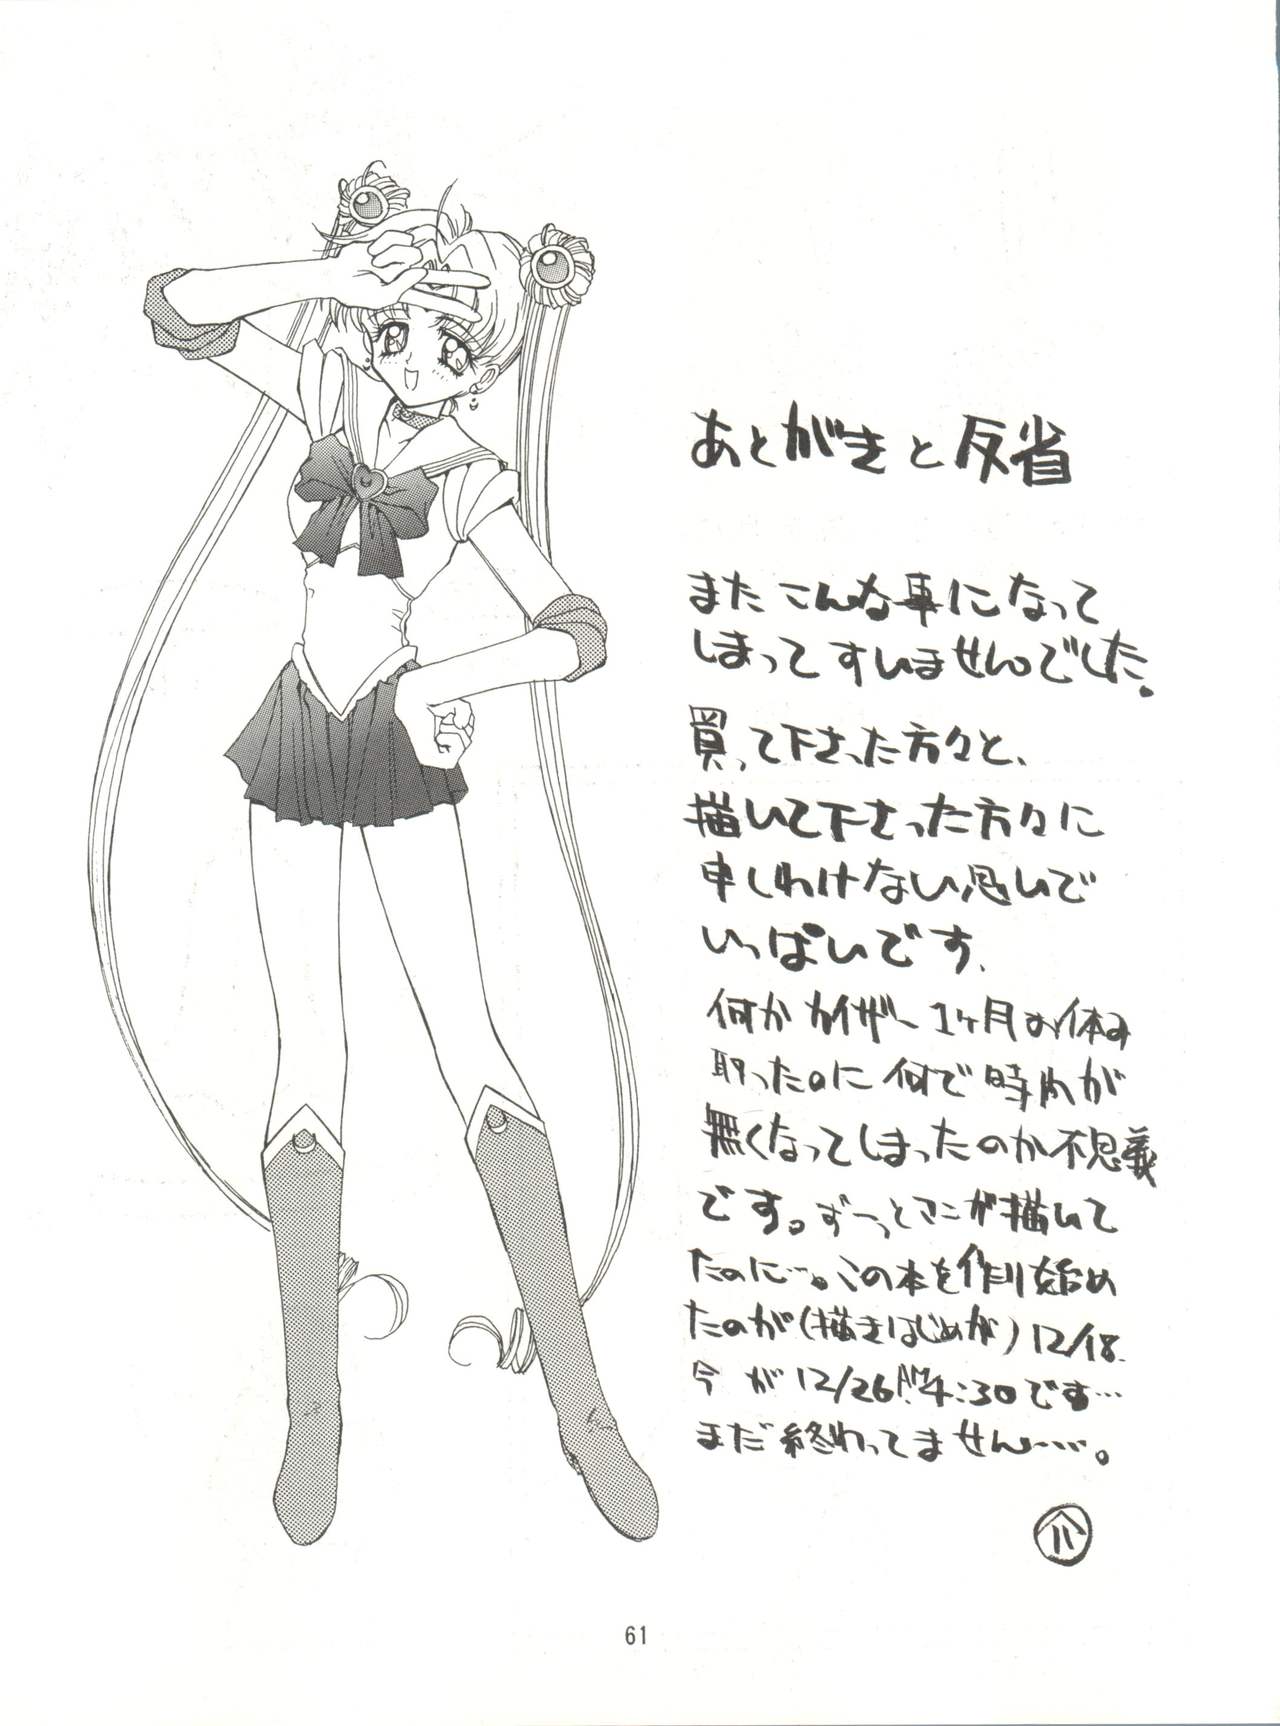 あとがきと反省
またこんな事になって
しまってすいませんでした。
買って下さった方々と、
描いて下さった方々に
申しわけない思いで
いっぱいです、
何かカイザー1ヶ月お休み
取ったのに何で時間が
無くなってしまったのか不思議
です。ずーっとマンガ描いて
たのに…。この本を作り始め
たのが(描きはじめが)12/18.
今が12/26AM4:30です…
まだ終わってません……。
61